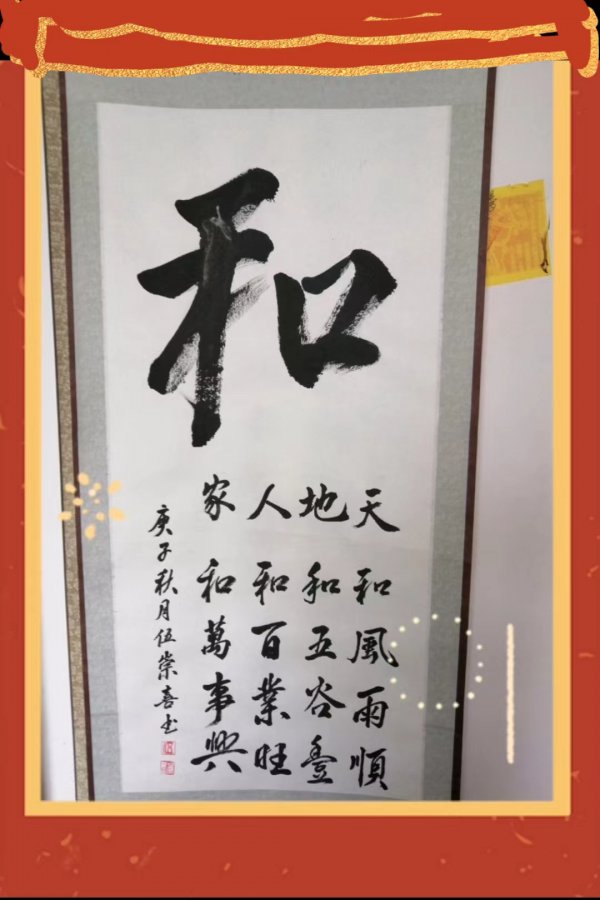 和
天和風雨順
地和五谷登
人和百業旺
家和萬事興
庚子秋月伍崇喜书